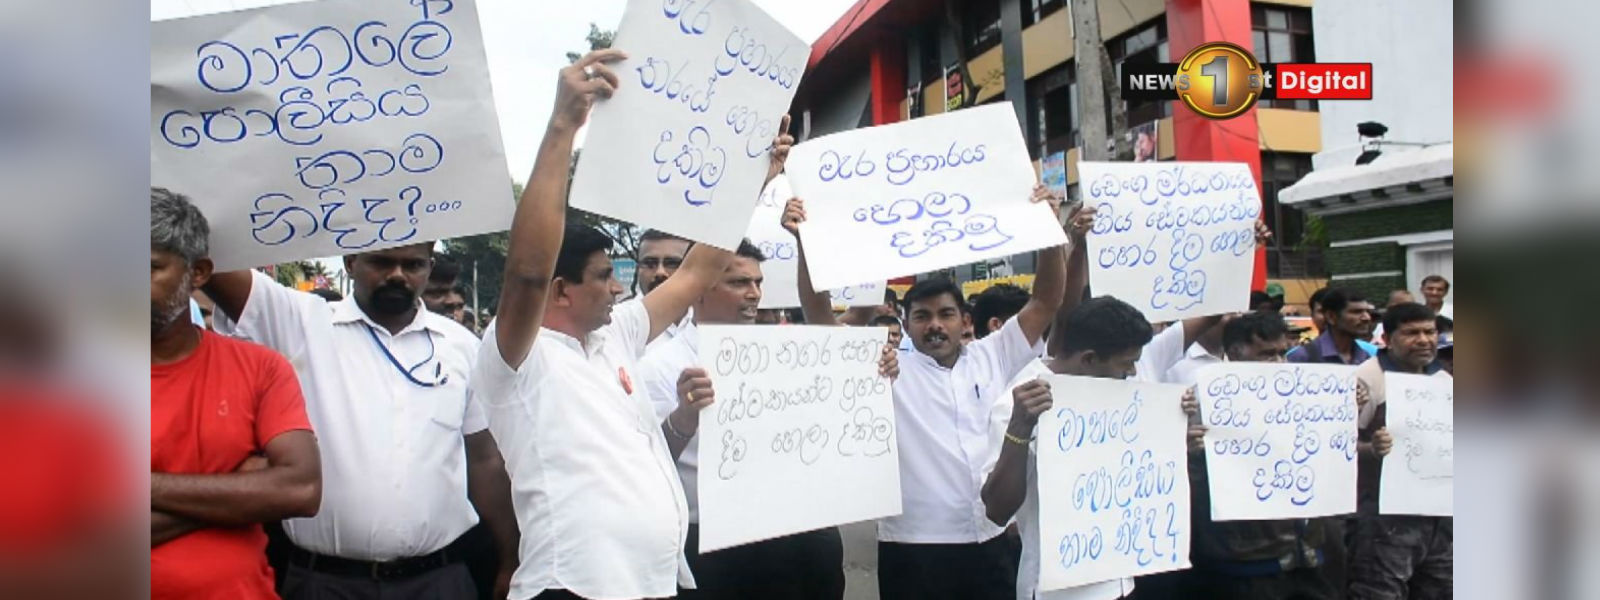 මාතලේ
පොලීසිය
තාම
නිදිද?...
මැර ප්‍රහාරය
තරයේ හෙලා
දකිමු
මැර ප්‍රහාරය
හෙලා
දකිමු
ඩෙංගු මර්ධනයට
ගිය සේවකයන්ට
පහර දීම හෙලා
දකිමු
මහා නගර සභා
සේවකයන්ට ප්‍රහාර
දීම හෙලා දකිමු
මාතලේ
පොලිසිය
තාම නිදිද?
ඩෙංගු මර්ධනයට
ගිය සේවකයන්ට
පහර දීම හෙලා
දකිමු
NEWS 1st Digital